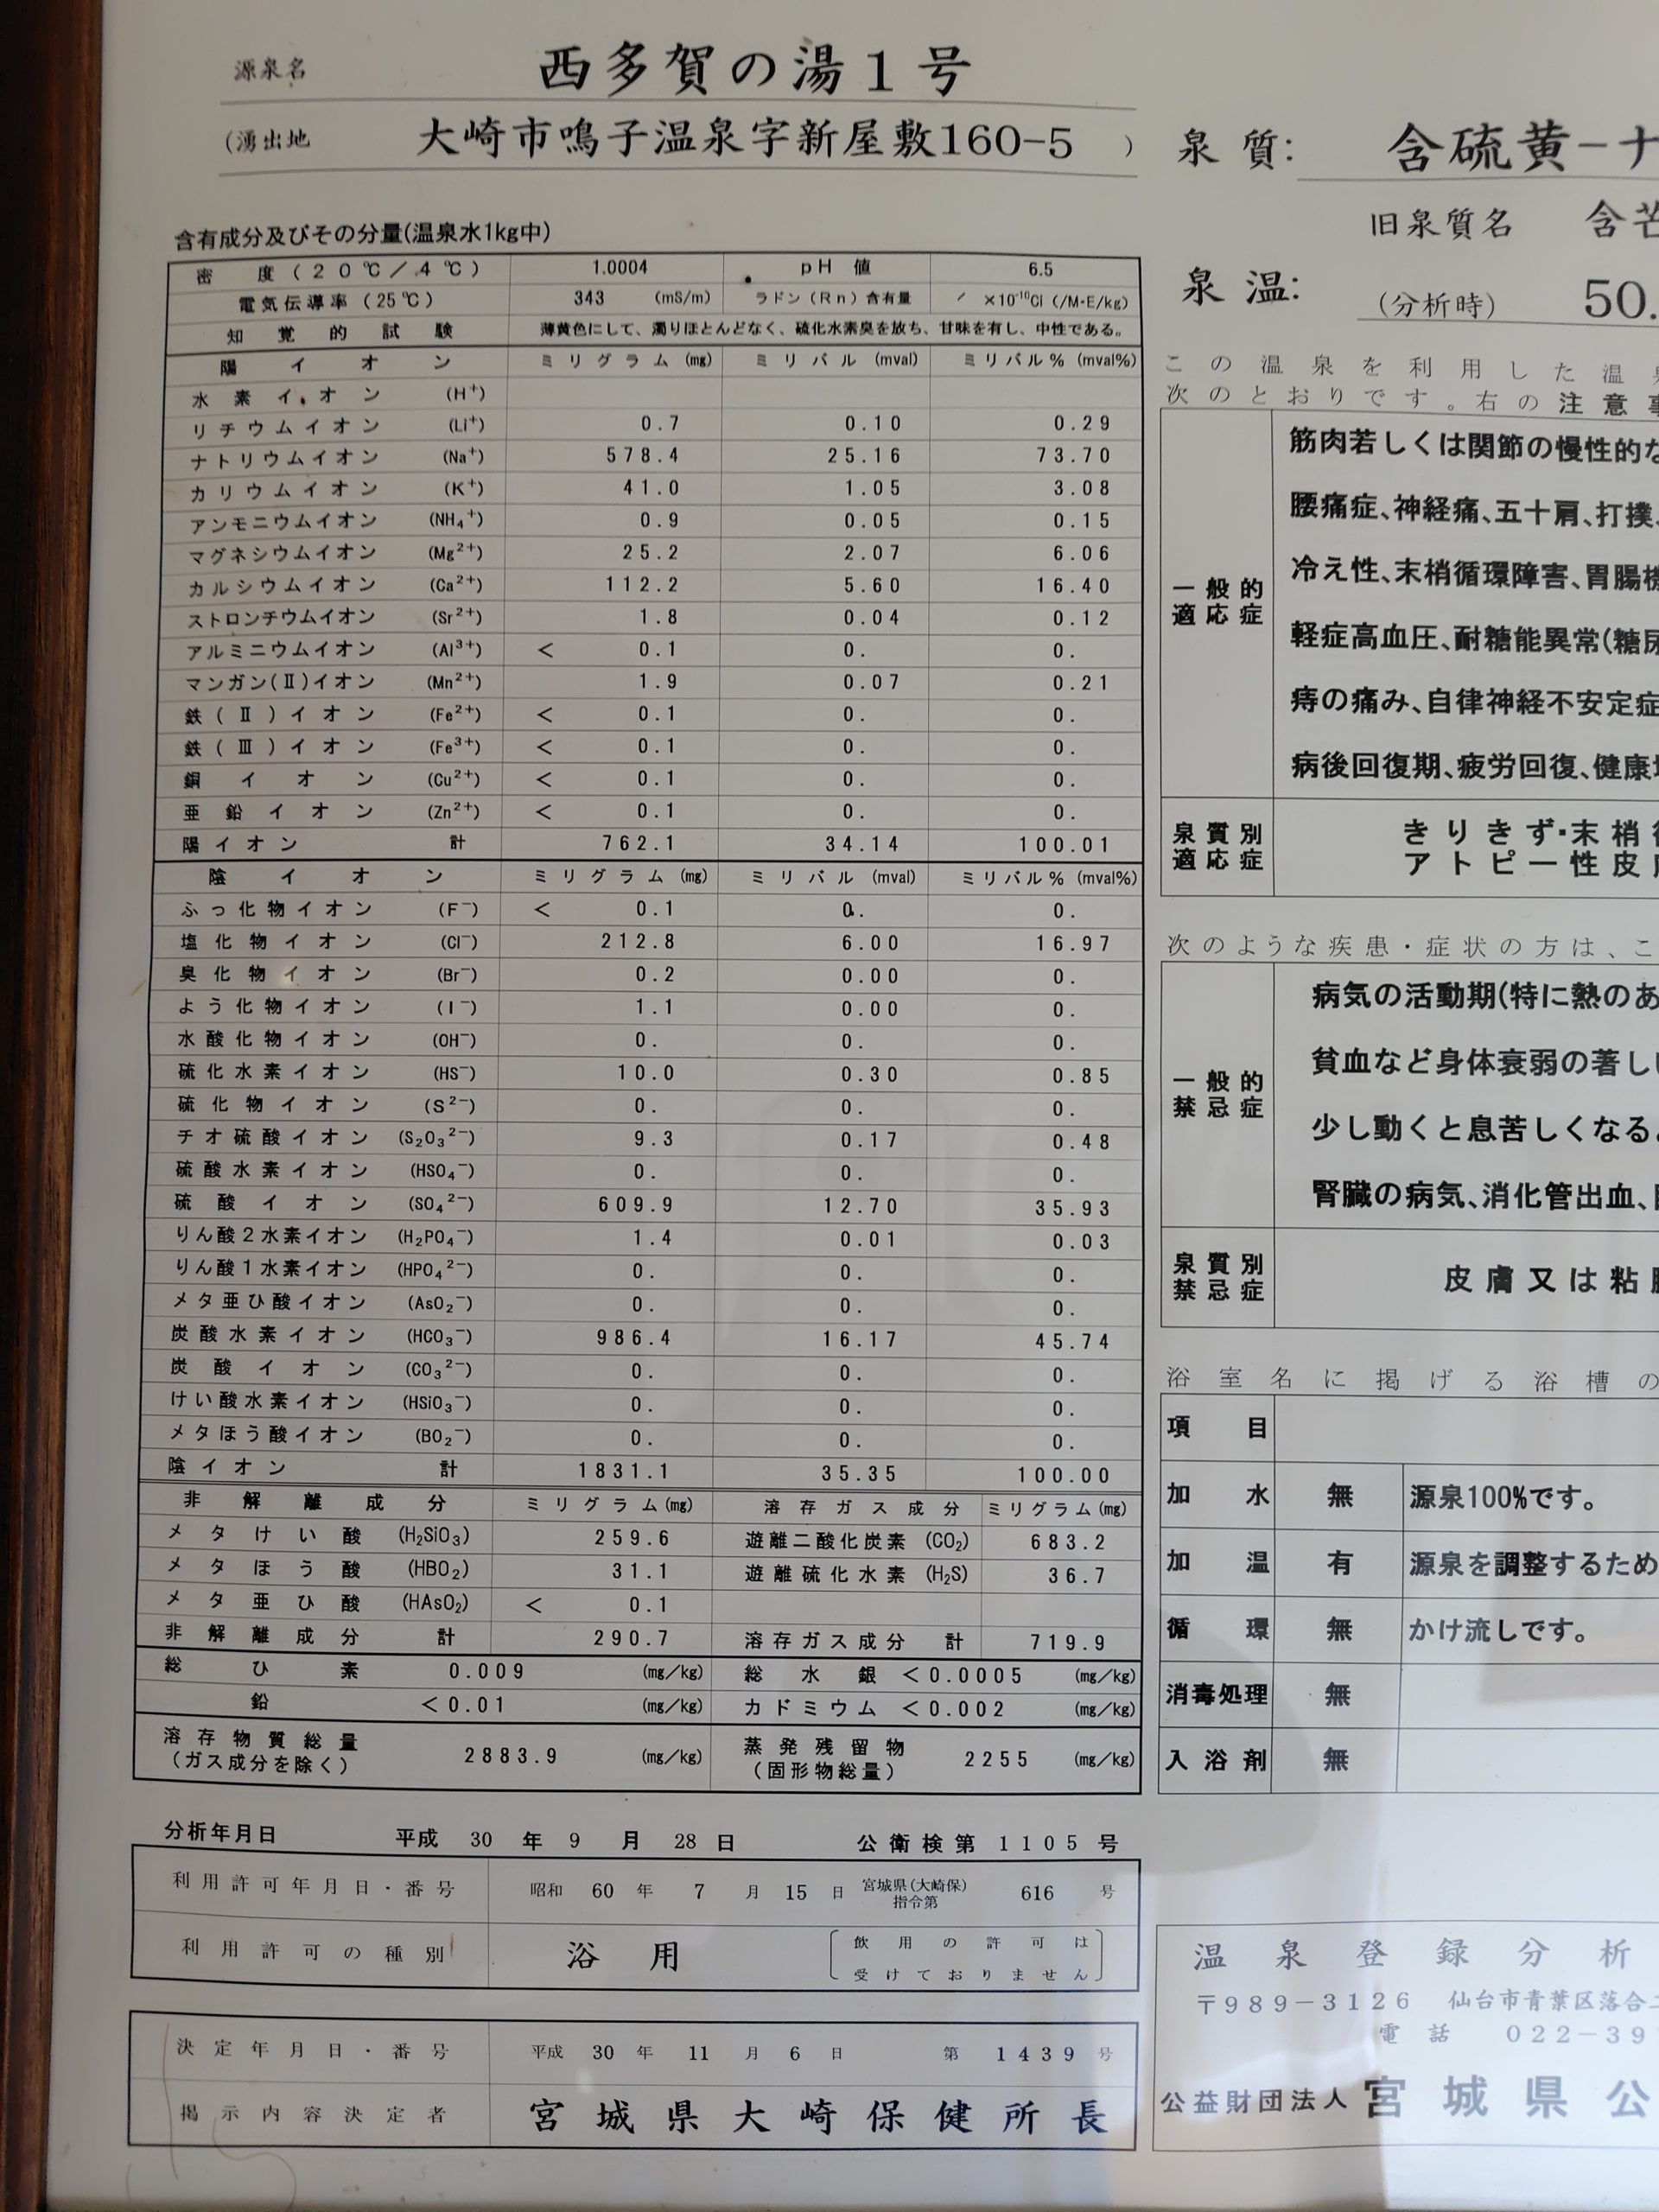 源泉名 西多賀の湯1号
(湧出地 大崎市鳴子温泉字新屋敷160-5 )
含有成分及びその分量(温泉水1kg中)
密度(20℃/4℃) 1.0004 pH値 6.5
電気伝導率(25℃) 343 (mS/m) ラドン(Rn)含有量 / ×10⁻¹⁰Ci (/M・E/kg)
知覚的試験 薄黄色にして、濁りほとんどなく、硫化水素臭を放ち、甘味を有し、中性である。
陽イオン ミリグラム(mg) ミリバル(mval) ミリバル%(mval%)
水素イオン (H⁺)
リチウムイオン (Li⁺) 0.7 0.10 0.29
ナトリウムイオン (Na⁺) 578.4 25.16 73.70
カリウムイオン (K⁺) 41.0 1.05 3.08
アンモニウムイオン (NH₄⁺) 0.9 0.05 0.15
マグネシウムイオン (Mg²⁺) 25.2 2.07 6.06
カルシウムイオン (Ca²⁺) 112.2 5.60 16.40
ストロンチウムイオン (Sr²⁺) 1.8 0.04 0.12
アルミニウムイオン (Al³⁺) < 0.1 0. 0.
マンガン(Ⅱ)イオン (Mn²⁺) 1.9 0.07 0.21
鉄(Ⅱ)イオン (Fe²⁺) < 0.1 0. 0.
鉄(Ⅲ)イオン (Fe³⁺) < 0.1 0. 0.
銅イオン (Cu²⁺) < 0.1 0. 0.
亜鉛イオン (Zn²⁺) < 0.1 0. 0.
陽イオン 計 762.1 34.14 100.01
陰イオン ミリグラム(mg) ミリバル(mval) ミリバル%(mval%)
ふっ化物イオン (F⁻) < 0.1 0. 0.
塩化物イオン (Cl⁻) 212.8 6.00 16.97
臭化物イオン (Br⁻) 0.2 0.00 0.
よう化物イオン (I⁻) 1.1 0.00 0.
水酸化物イオン (OH⁻) 0. 0. 0.
硫化水素イオン (HS⁻) 10.0 0.30 0.85
硫化物イオン (S²⁻) 0. 0. 0.
チオ硫酸イオン (S₂O₃²⁻) 9.3 0.17 0.48
硫酸水素イオン (HSO₄⁻) 0. 0. 0.
硫酸イオン (SO₄²⁻) 609.9 12.70 35.93
りん酸2水素イオン (H₂PO₄⁻) 1.4 0.01 0.03
りん酸1水素イオン (HPO₄²⁻) 0. 0. 0.
メタ亜ひ酸イオン (AsO₂⁻) 0. 0. 0.
炭酸水素イオン (HCO₃⁻) 986.4 16.17 45.74
炭酸イオン (CO₃²⁻) 0. 0. 0.
けい酸水素イオン (HSiO₃⁻) 0. 0. 0.
メタほう酸イオン (BO₂⁻) 0. 0. 0.
陰イオン 計 1831.1 35.35 100.00
非解離成分 ミリグラム(mg) 溶存ガス成分 ミリグラム(mg)
メタけい酸 (H₂SiO₃) 259.6 遊離二酸化炭素 (CO₂) 683.2
メタほう酸 (HBO₂) 31.1 遊離硫化水素 (H₂S) 36.7
メタ亜ひ酸 (HAsO₂) < 0.1
非解離成分 計 290.7 溶存ガス成分 計 719.9
総ひ素 0.009 (mg/kg) 総水銀 <0.0005 (mg/kg)
鉛 <0.01 (mg/kg) カドミウム <0.002 (mg/kg)
溶存物質総量 (ガス成分を除く) 2883.9 (mg/kg) 蒸発残留物 (固形物総量) 2255 (mg/kg)
分析年月日 平成 30 年 9 月 28 日 公衛検第 1105 号
利用許可年月日・番号 昭和 60 年 7 月 15 日 宮城県(大崎保)指令第 616 号
利用許可の種別 浴用 飲用の許可は
受けておりません
決定年月日・番号 平成 30 年 11 月 6 日 第 1439 号
掲示内容決定者 宮城県大崎保健所長
泉質: 含硫黄-ナ
旧泉質名 含芒
泉温: (分析時) 50.
この温泉を利用した温
次のとおりです。右の注意事
一般的適応症
筋肉若しくは関節の慢性的な
腰痛症、神経痛、五十肩、打撲、
冷え性、末梢循環障害、胃腸機
軽症高血圧、耐糖能異常(糖尿
痔の痛み、自律神経不安定症
病後回復期、疲労回復、健康
泉質別適応症
きりきず・末梢
アトピー性皮
次のような疾患・症状の方は、こ
一般的禁忌症
病気の活動期(特に熱のあ
貧血など身体衰弱の著し
少し動くと息苦しくなる
腎臓の病気、消化管出血、
泉質別禁忌症
皮膚又は粘
浴室名に掲げる浴槽の
項目
加水 無 源泉100%です。
加温 有 源泉を調整するため
循環 無 かけ流しです。
消毒処理 無
入浴剤 無
温泉登録分析
〒989-3126 仙台市青葉区落合
電話 022-39
公益財団法人 宮城県公